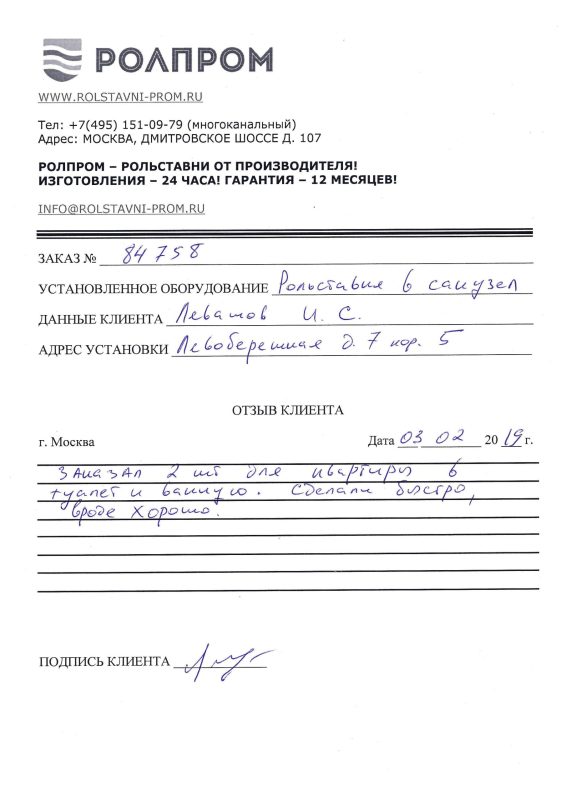 РОЛПРОМ
WWW.ROLSTAVNI-PROM.RU
Тел: +7(495) 151-09-79 (многоканальный)
Адрес: МОСКВА, ДМИТРОВСКОЕ ШОССЕ Д. 107
РОЛПРОМ – РОЛЬСТАВНИ ОТ ПРОИЗВОДИТЕЛЯ!
ИЗГОТОВЛЕНИЯ – 24 ЧАСА! ГАРАНТИЯ – 12 МЕСЯЦЕВ!
INFO@ROLSTAVNI-PROM.RU
ЗАКАЗ № 84758
УСТАНОВЛЕННОЕ ОБОРУДОВАНИЕ Рольставня в санузел
ДАННЫЕ КЛИЕНТА Левашов И. С.
АДРЕС УСТАНОВКИ Левобережная д. 7 кор. 5
ОТЗЫВ КЛИЕНТА
г. Москва Дата 03 02 2019 г.
Заказал 2 шт для квартиры в
туалет и ванную. Сделали быстро,
вроде хорошо.
ПОДПИСЬ КЛИЕНТА